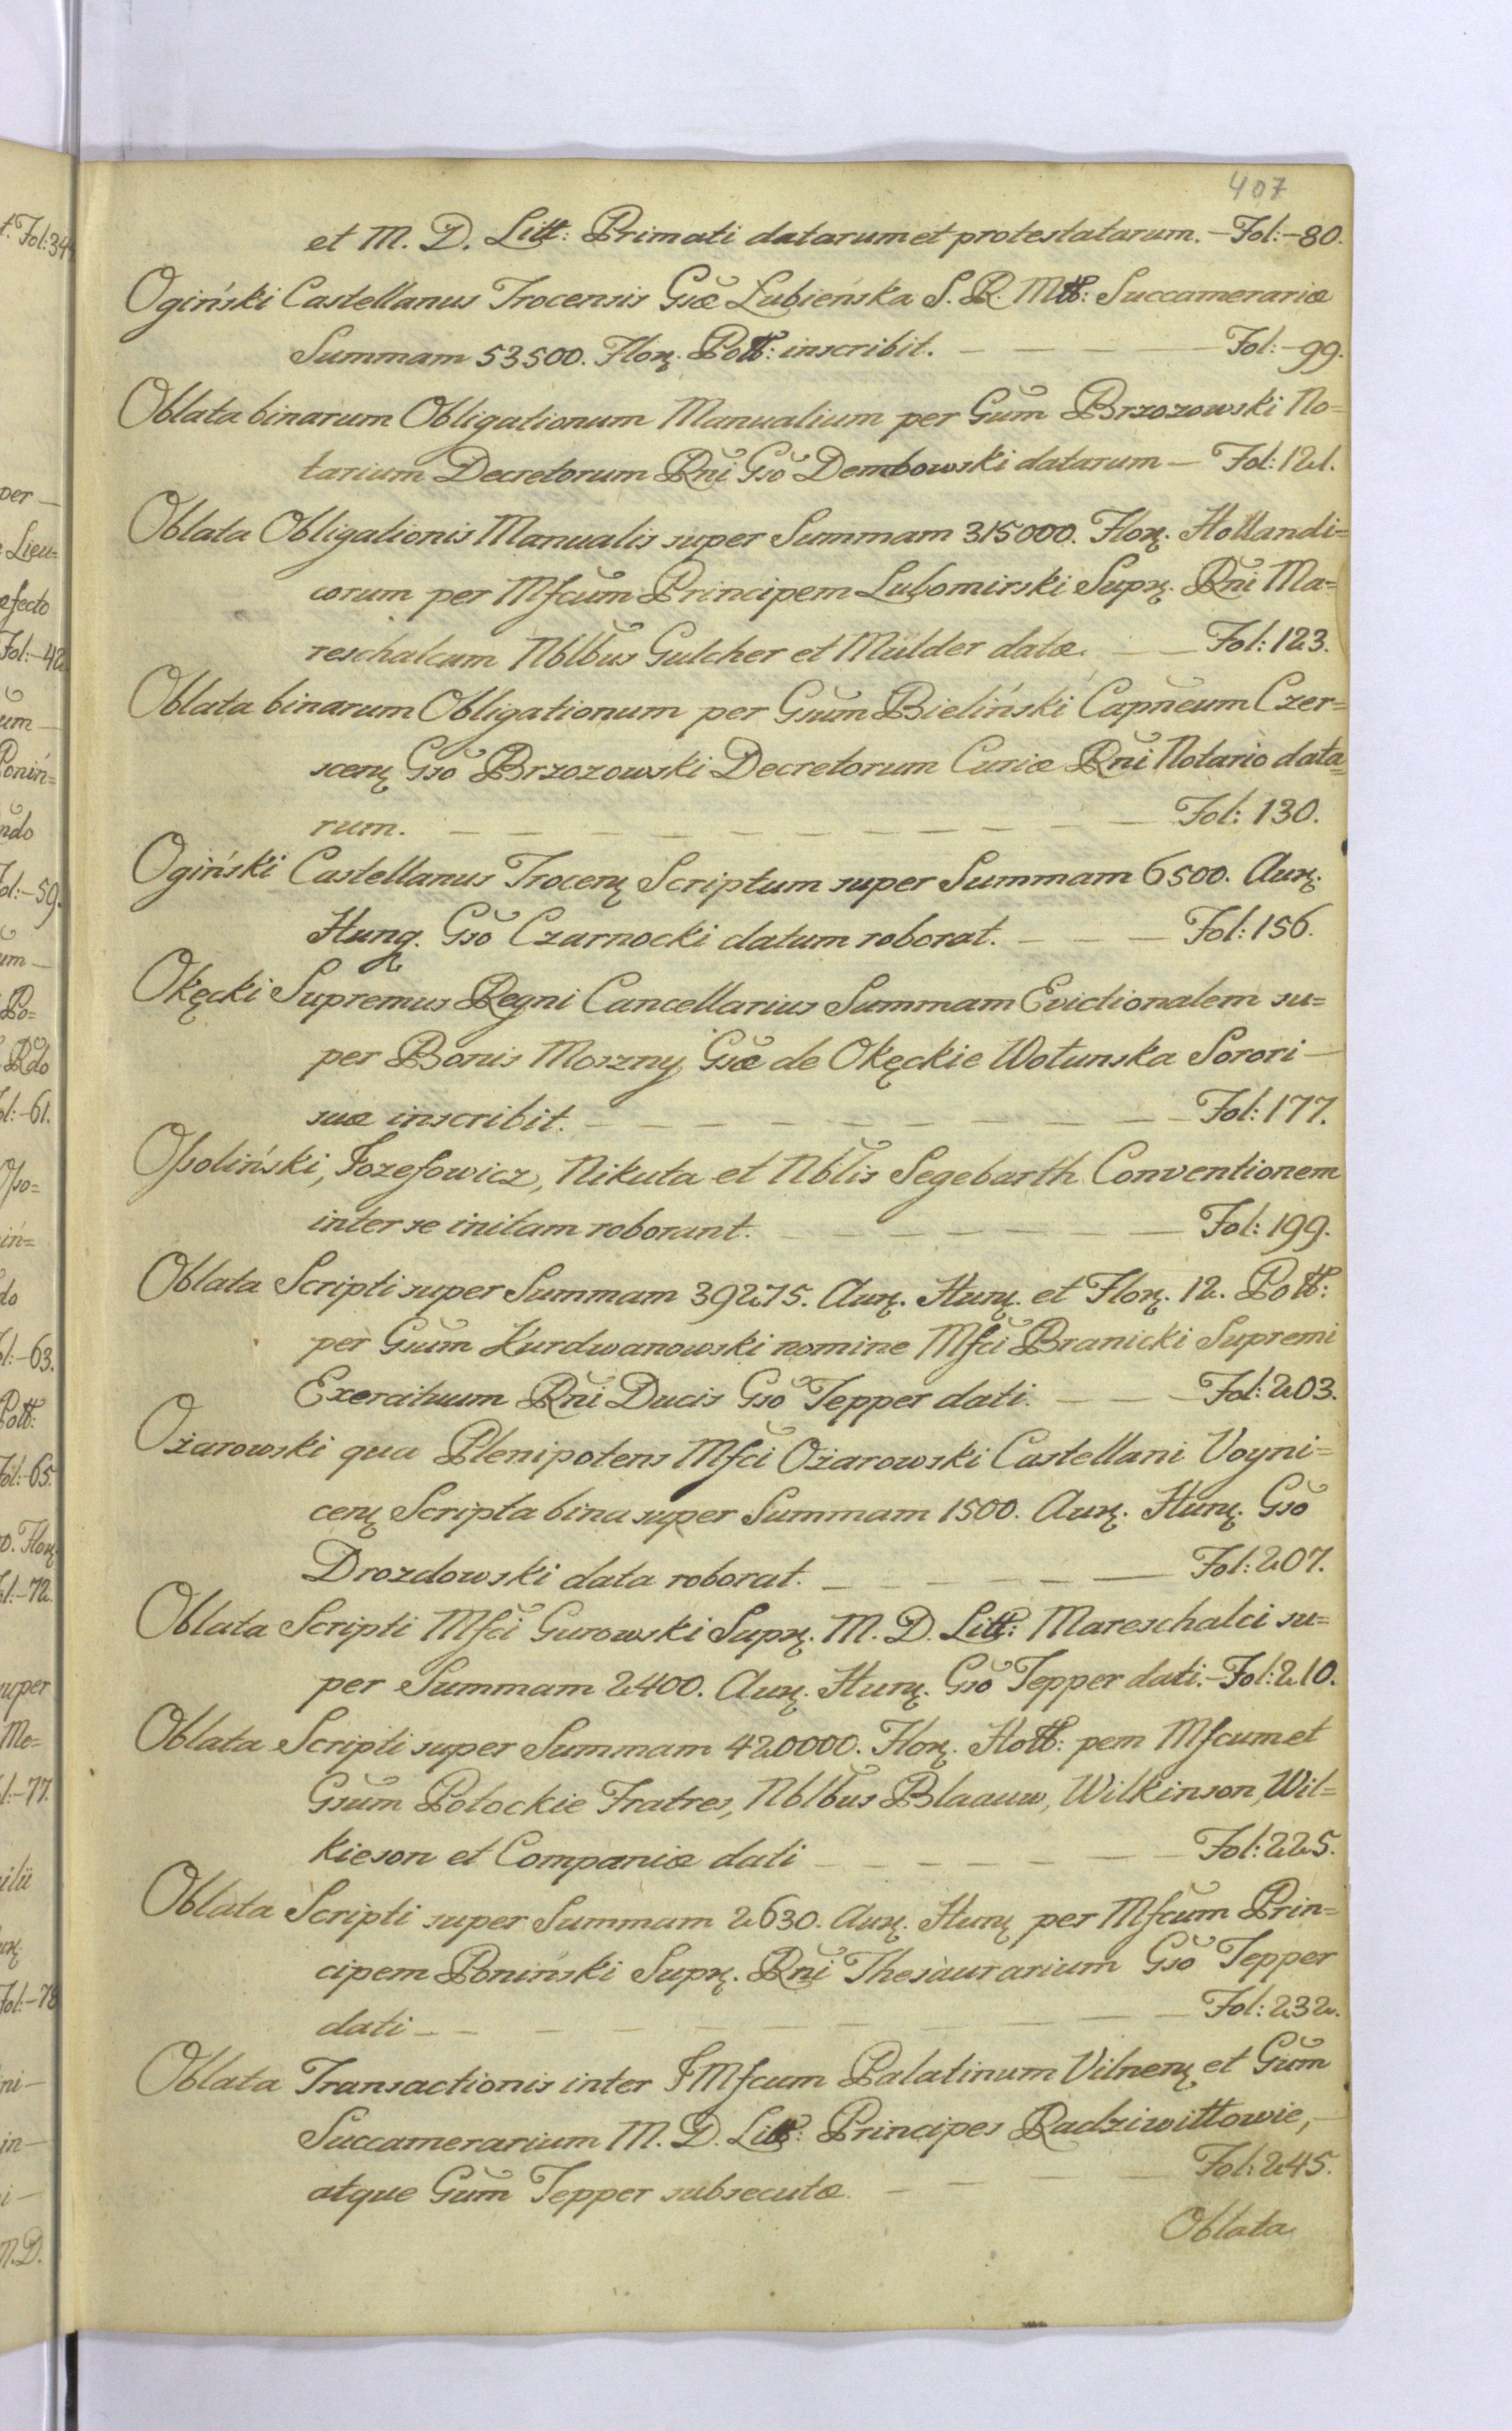 407
et M. D. Litt: Primati datarum et protestatarum. - Fol: - 80.
Ogiński Castellanus Trocensis Gsæ Łubieńska S. R. Mtt: Succamerariæ
Summam 53500. Flor. Poll: inscribit. - Fol: - 99.
Oblata binarum Obligationum Manualium per Gum̃ Brzozowski No=
tarium Decretorum Rñi Gsõ Dembowski datarum - Fol: 121.
Oblata Obligationis Manualis super Summam 315000. Flor. Hollandi=
corum per Mfcum̃ Principem Lubomirski Supr. Rñi Ma=
reschalcum Nblb̃us Gulcher et Mülder datæ. - Fol: 123.
Oblata binarum Obligationum per Gsum̃ Bieliński Capñeum Czer=
scen. Gsõ Brzozowski Decretorum Curiæ Rñi Notario data=
rum. - Fol: 130.
Ogiński Castellanus Trocen. Scriptum super Summam 6500. Aur.
Hung. Gsõ Czarnocki datum roborat. - Fol: 156.
Okęcki Supremus Regni Cancellarius Summam Evictionalem su=
per Bonis Moszny Gsæ de Okęckie Wołunska Sorori -
suæ inscribit. - Fol: 177.
Opoliński, Jozefowicz, Nikuta et Nblĩs Segebarth Conventionem
inter se initam roborant. - Fol: 199.
Oblata Scripti super Summam 39275. Aur. Hun. et Flor. 12. Poll:
per Gsum̃ Kurdwanowski nomine Mfcĩ Branicki Supremi
Exercituum Rñi Ducis Gsõ Tepper dati. - Fol: 203.
Ożarowski qua Plenipotens Mfcĩ Ożarowski Castellani Voyni=
cen. Scripta bina super Summam 1500. Aur. Hun. Gsõ
Drozdowski data roborat. - Fol: 207.
Oblata Scripti Mfcĩ Gurowski Supr. M. D. Litt: Mareschalci su=
per Summam 2400. Aur. Hun. Gsõ Tepper dati. - Fol: 210.
Oblata Scripti super Summam 420000. Flor. Holl: pem Mfcum et
Gsum̃ Potockie Fratres, Nblb̃us Blaauw, Wilkinson, Wil=
kieson et Companiæ dati - Fol: 225.
Oblata Scripti super Summam 2630. Aur. Hun. per Mfcum̃ Prin=
cipem Poniński Supr. Rñi Thesaurarium Gsõ Tepper
dati - Fol: 232.
Oblata Transactionis inter JMfcum Palatinum Vilnen. et Gsum̃
Succamerarium M. D. Litt: Principes Radziwiłłowie, -
atque Gum̃ Tepper subsecutæ. - Fol: 245.
Oblata